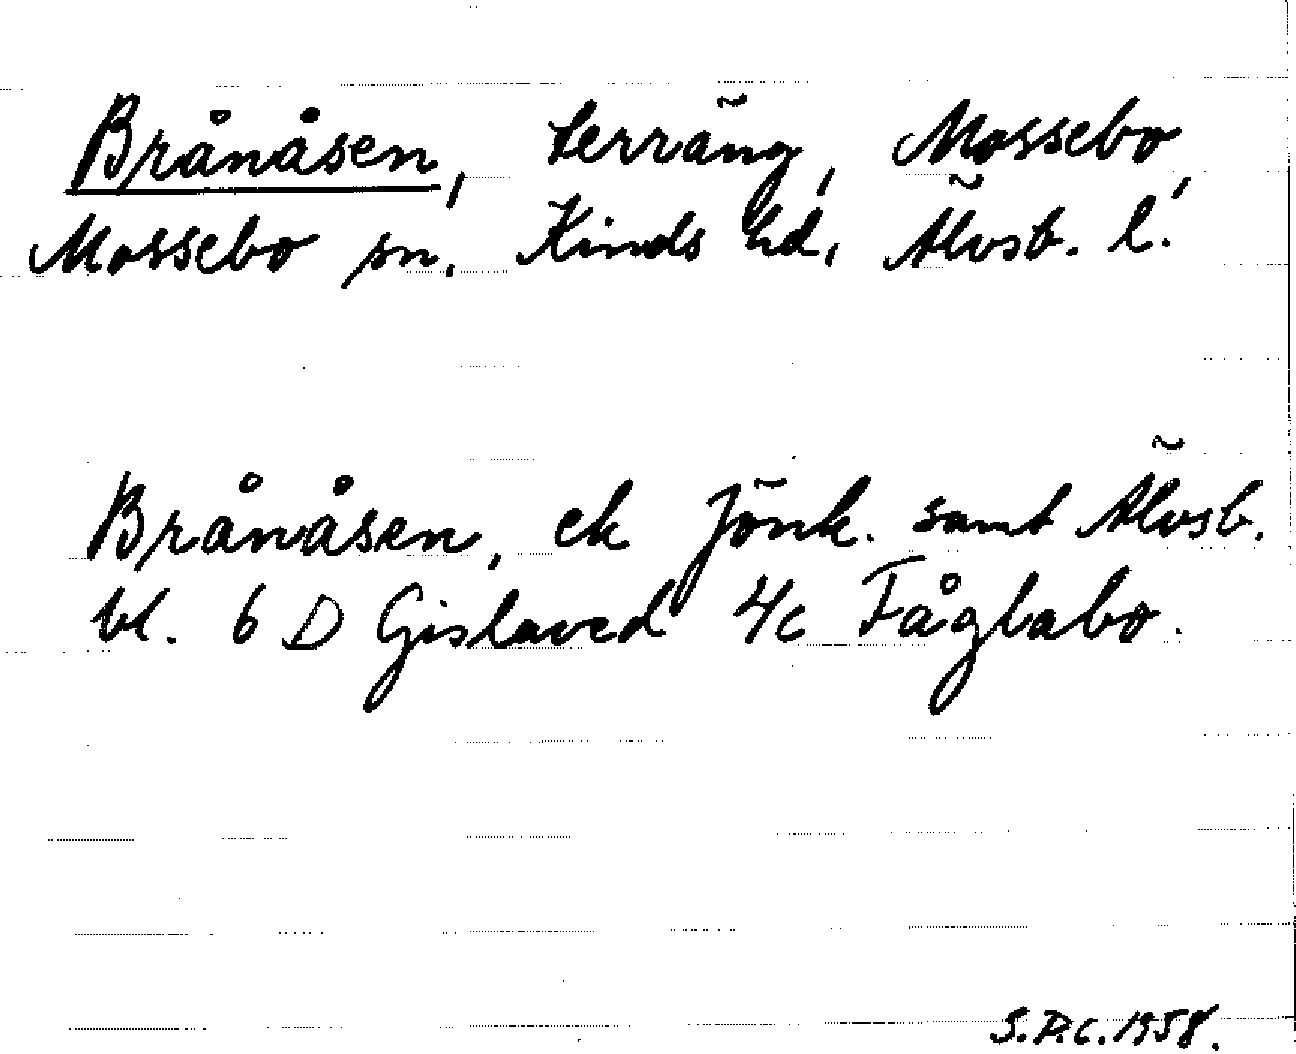 Brånåsen, terräng, Mossebo,
Mossebo sn, Kinds hd, Älvsb. l.
Brånåsen, ek Jönk. samt Älvsb.
bl. 6 D Gislaved 4c Fåglabo.
S.P.C. 1958.